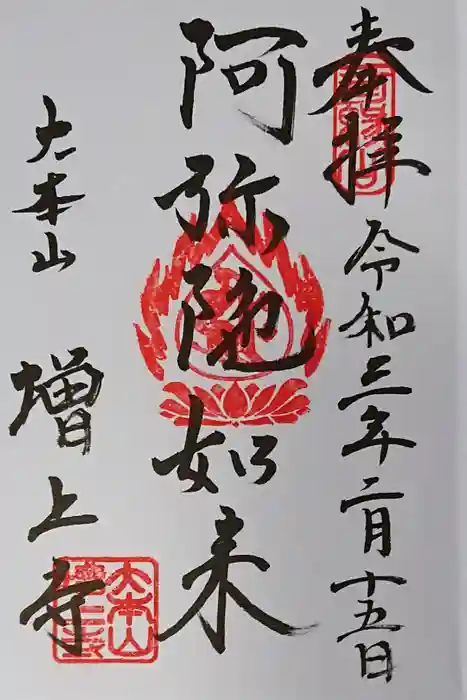 奉拝
令和三年二月十五日
阿弥陀如来
大本山
増上寺
大本山
増上寺